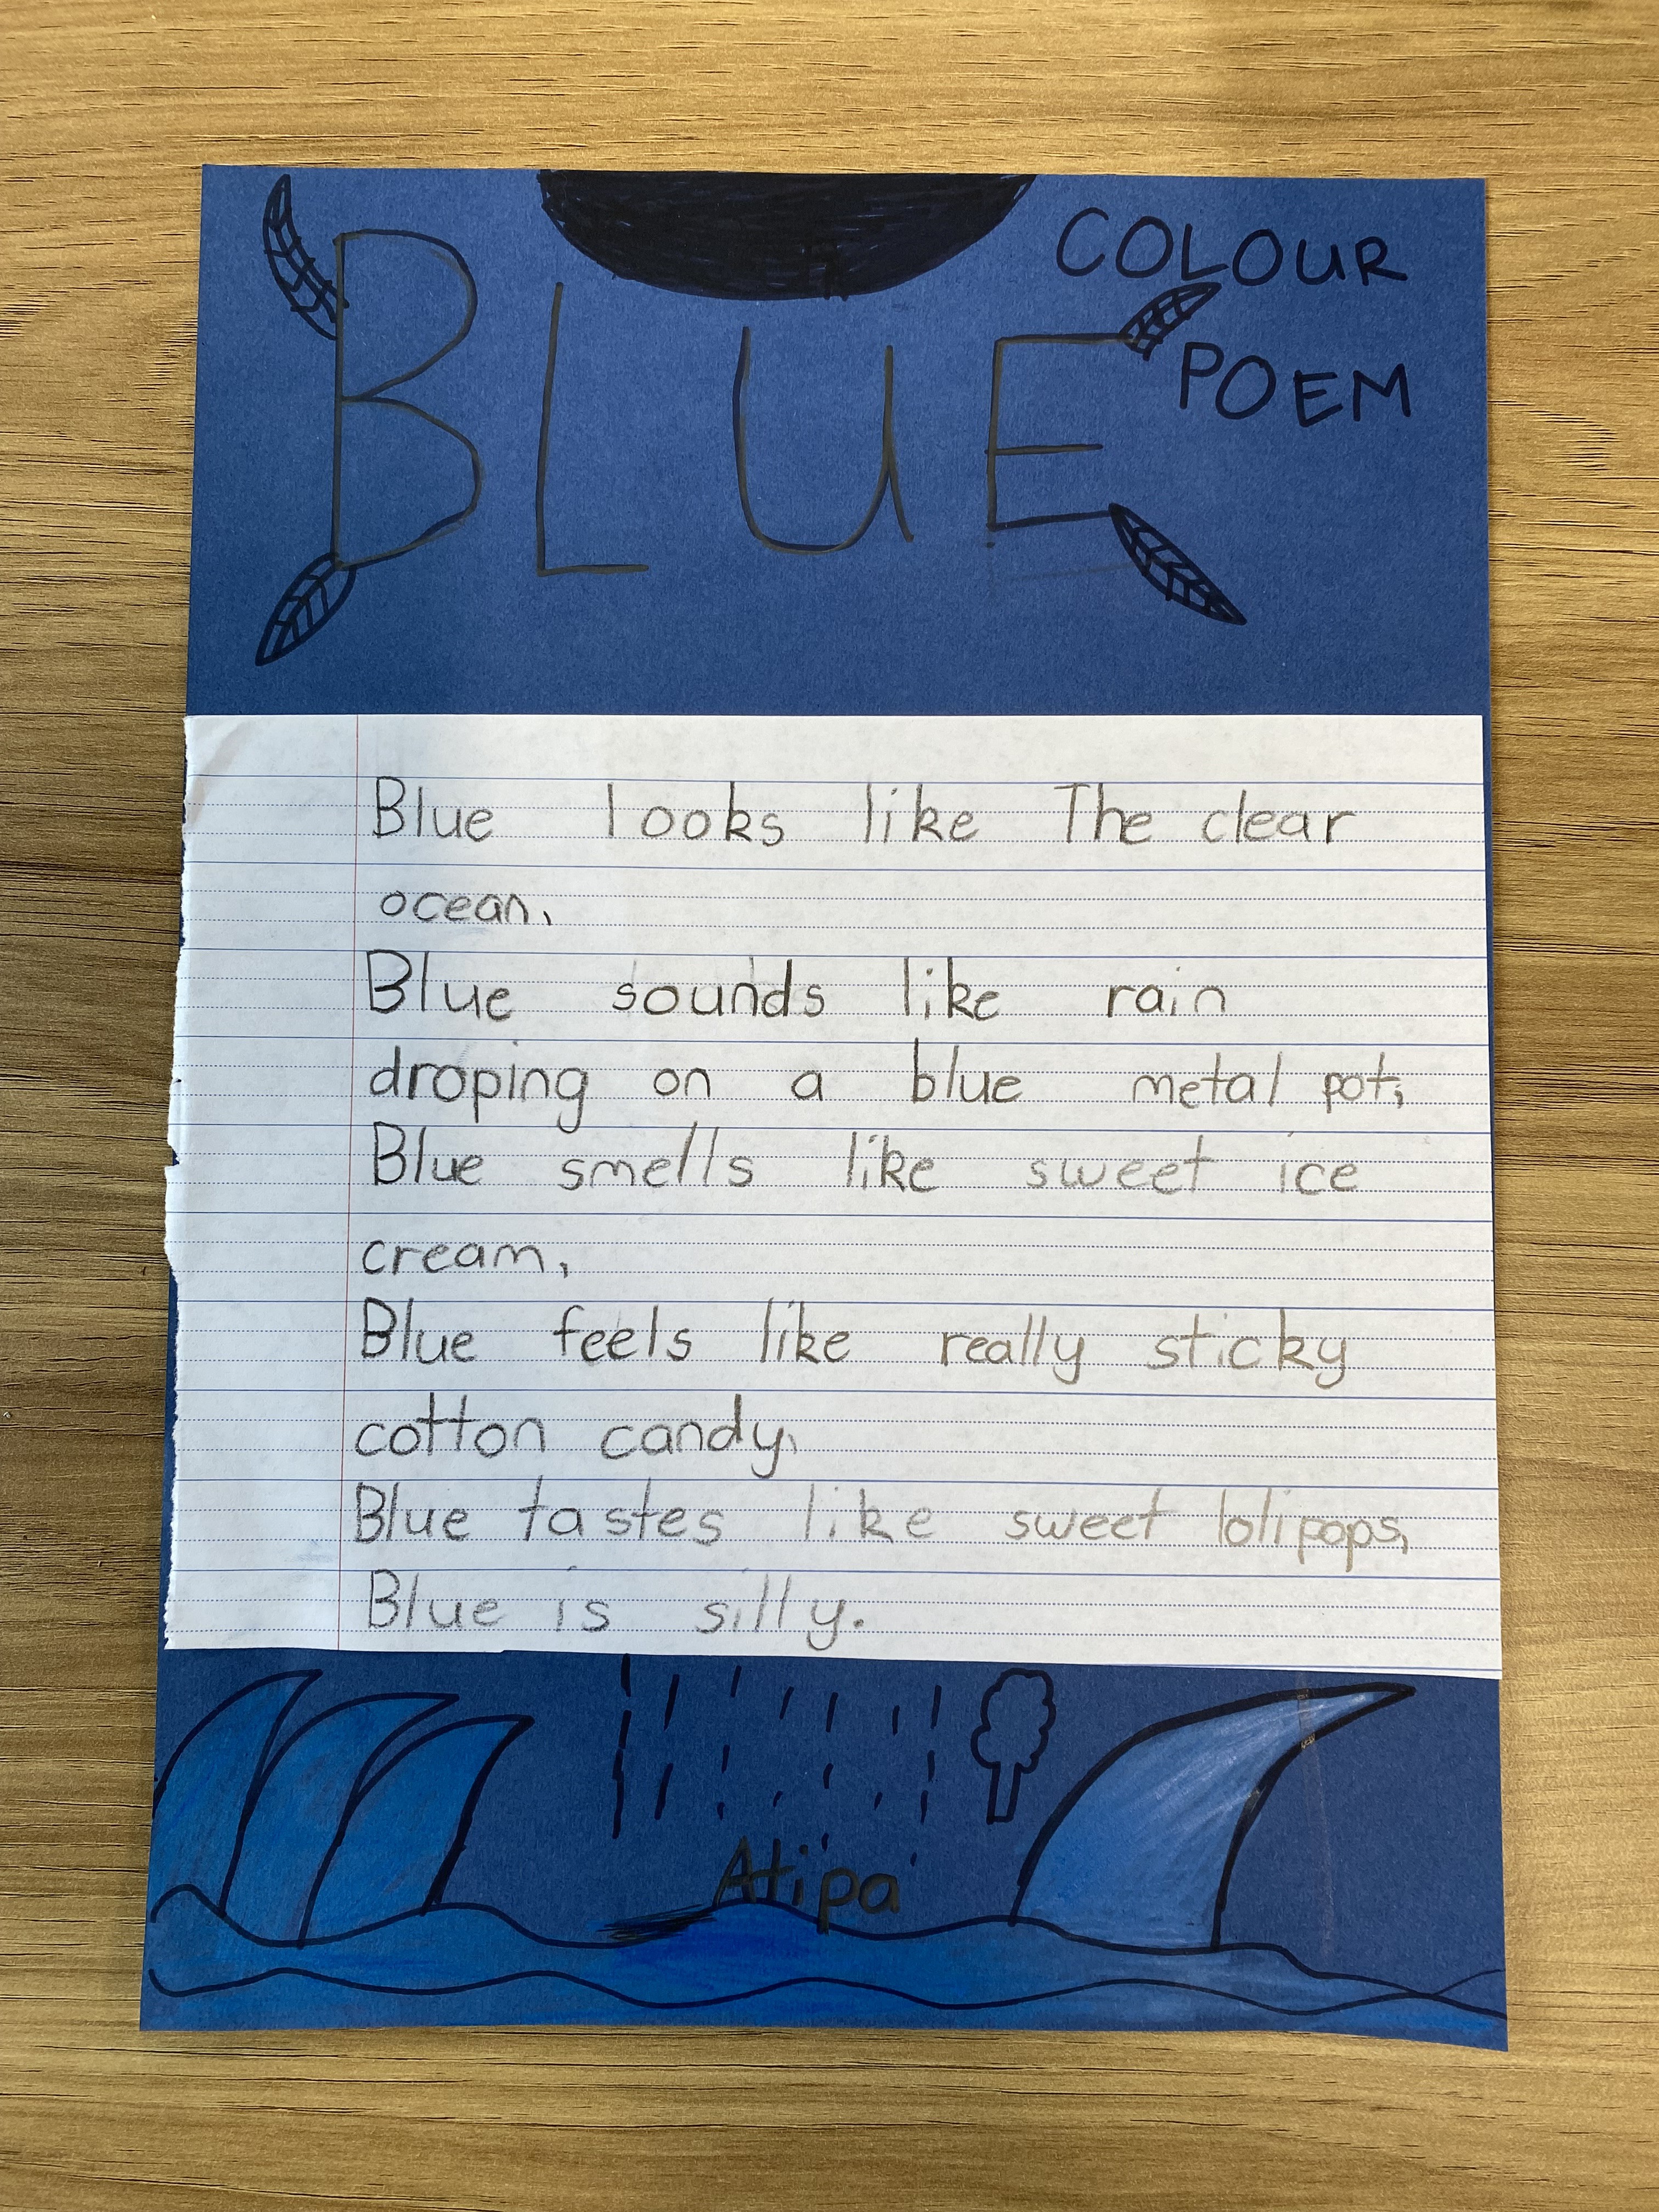 BLUE
COLOUR
POEM
Blue looks like The clear
ocean,
Blue sounds like rain
droping on a blue metal pot,
Blue smells like sweet ice
cream,
Blue feels like really sticky
cotton candy,
Blue tastes like sweet lolipops,
Blue is silly.
Atipa